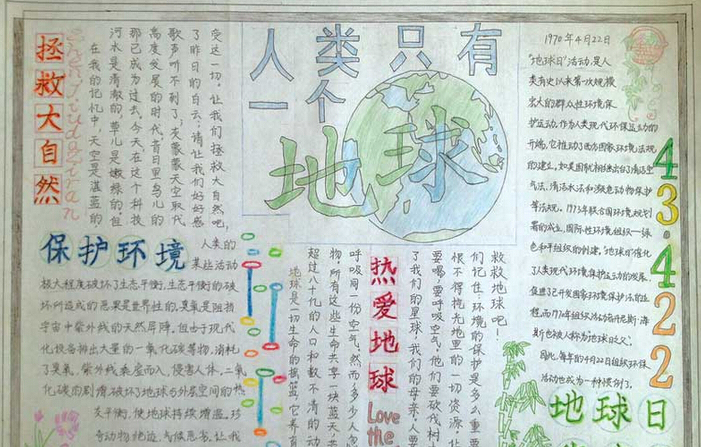 人类只有
一个
地球
拯救大自然
在我的记忆中，天空是湛蓝的
河水是清澈的，草儿是嫩绿的，但
那已成为过去，今天在这个科技
高度发展的时代，昔日里鸟儿的
歌声听不到了，灰蒙蒙天空取代
了昨日的白云；请让我们好好感
受这一切，让我们拯救大自然吧
保护环境
人类的
某些活动
极大程度破坏了生态平衡，生态平衡的破
坏所造成的恶果是世界性的，臭氧是阻挡
宇宙中紫外线的天然屏障，但由于现代
化设备排出大量的一氧化碳等物，消耗
了臭氧，紫外线乘虚而入，侵害人体，二氧
化碳的剧增，破坏了地球与外层空间的热
平衡，使地球持续增温，珍
奇动物绝迹，气候恶劣，让我
热爱地球
Love
the
救救地球吧！
们记住环境的保护是多么重要
恨不得挖光地里的一切资源，让
要喝，要呼吸空气，他们要砍伐树
了我们的星球，我们的母亲，人要
呼吸同一份空气，然而多少人忽
物，所有这些生命共享一块蓝天
超过八十九的人口和数不清的动
地球是一切生命的摇篮，它养育
1970年4月22日
"地球日"活动，是人
类有史以来第一次规模
宏大的群众性环境保
护运动，作为人类现代环保运动的
开端，它推动了西方国家环境法规
的建立，如美国就相继出台了清洁空
气法、清洁水法和濒危动物保护
等法规，1973年联合国环境规划
署的成立，国际性环境组织——绿
色和平组织的创建，"地球日"催化
了人类现代环境保护运动的发展，
促进了已开发国家环境保护法的立
因此，每年的4月22日组织环保
活动也成为一种惯例了。
43·422
地球日